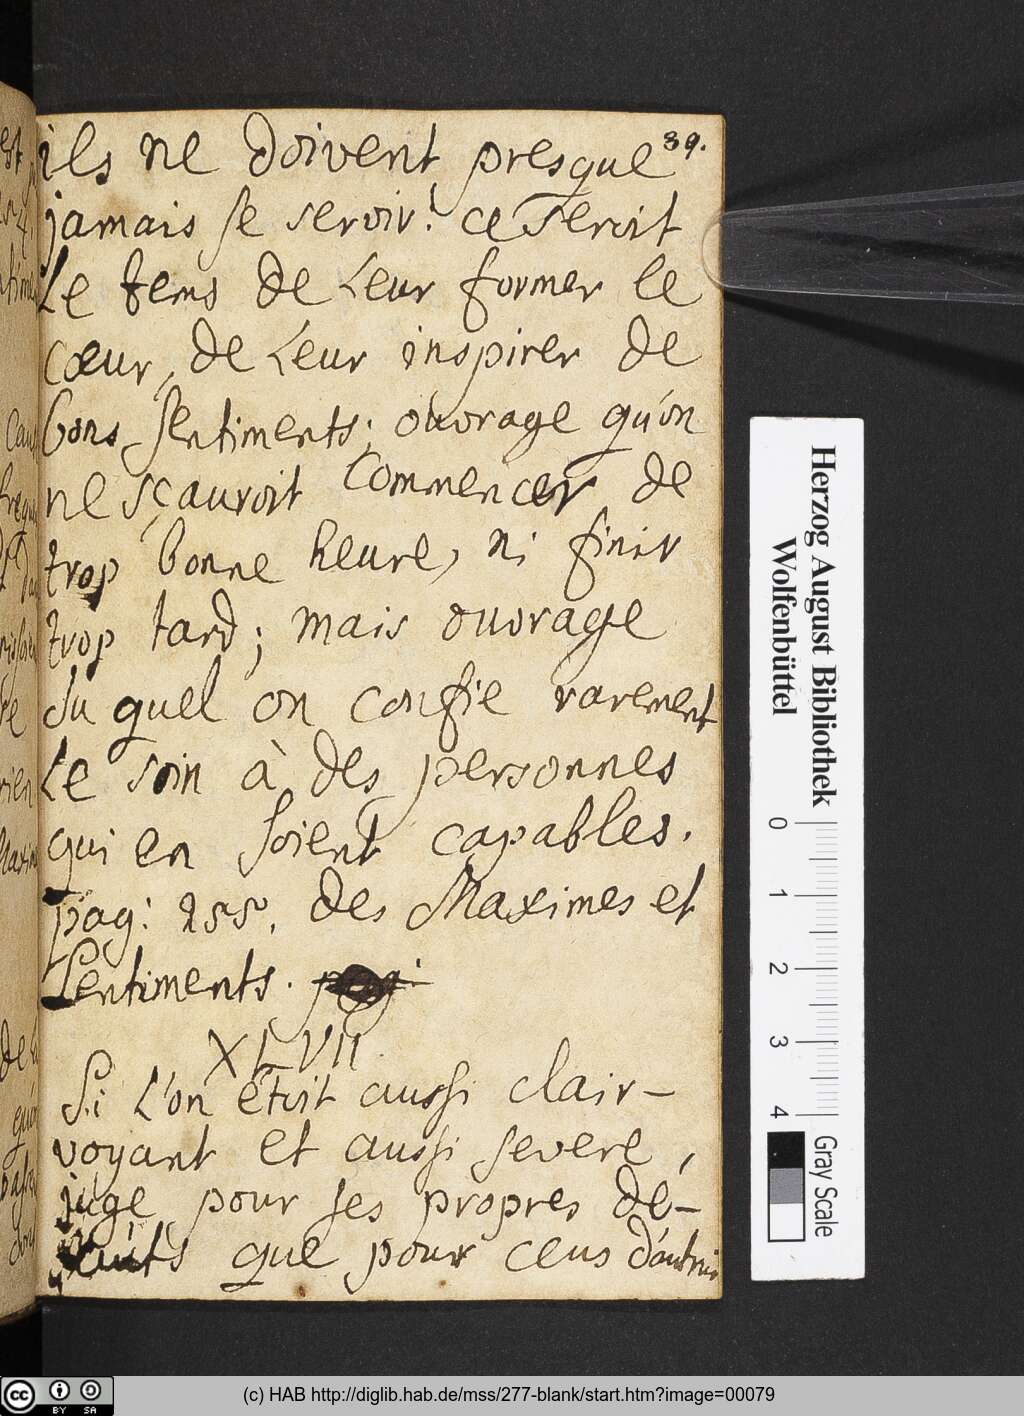 39.
ils ne doivent presque
jamais se servir! ce seroit
Le tems de Leur former le
cœur, de Leur inspirer de
bons sentiments; ouvrage qu'on
ne sçauroit commencer de
trop bonne heure, ni finir
trop tard; mais ouvrage
du quel on confie rarement
Le soin à des personnes
qui en soient capables.
pag: 255. des Maximes et
Sentiments. pag:
XLVII
Si L'on étoit aussi clair-
voyant et aussi severe,
juge pour ses propres dé-
fauts que pour ceus d'autrui
Herzog August Bibliothek
Wolfenbüttel
0 1 2 3 4
Gray Scale
cc BY SA
(c) HAB http://diglib.hab.de/mss/277-blank/start.htm?image=00079